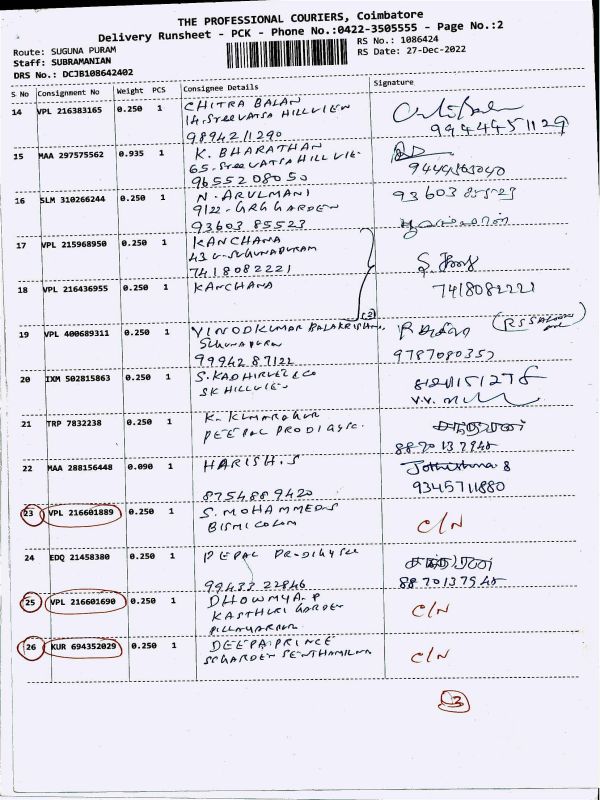 THE PROFESSIONAL COURIERS, Coimbatore
Delivery Runsheet - PCK - Phone No.:0422-3505555 - Page No.:2
Route: SUGUNA PURAM
RS No.: 1086424
Staff: SUBRAMANIAN
RS Date: 27-Dec-2022
DRS No.: DCJB108642402
S No Consignment No Weight PCS Consignee Details Signature
14 VPL 216383165 0.250 1 CHITRA BALAN
14-SreeVATSA HILLVIEW
9894211290 9944451129
15 MAA 297575562 0.935 1 K. BHARATHAN
65-SreeVATSA HILL VIE-
9655208050
16 SLM 310266244 0.250 1 N. ARULMANI 93603 85523
9122-GRG GARDEN
93603 85523
17 VPL 215968950 0.250 1 KANCHANA
43 SUGUNAPURAM
7418082221
18 VPL 216436955 0.250 1 KANCHANA 7418082221
(2)
19 VPL 400689311 0.250 1 VINODKUMAR BALAKRISHNA
SUGUNAPURAM
99942 87122 9787080357
20 IXM 502815863 0.250 1 S. KADHIRVEL & CO
SK HILLVIEW
21 TRP 7832238 0.250 1 K. KUMARAGUR
PEEPAL PRODIGY SC
8870137948
22 MAA 288156448 0.090 1 HARISH.S
8754889420 9345711880
23 VPL 216601889 0.250 1 S. MOHAMMED S C/N
BISMI COLON
24 EDQ 21458380 0.250 1 PEPAL PRODIGY SC
99433 22846 8870137948
25 VPL 216601690 0.250 1 DHOWMYA.P C/N
KASTHURI GARDEN
26 KUR 694352029 0.250 1 DEEPA PRINCE C/N
SCGARDEN SENTHAMIL
3